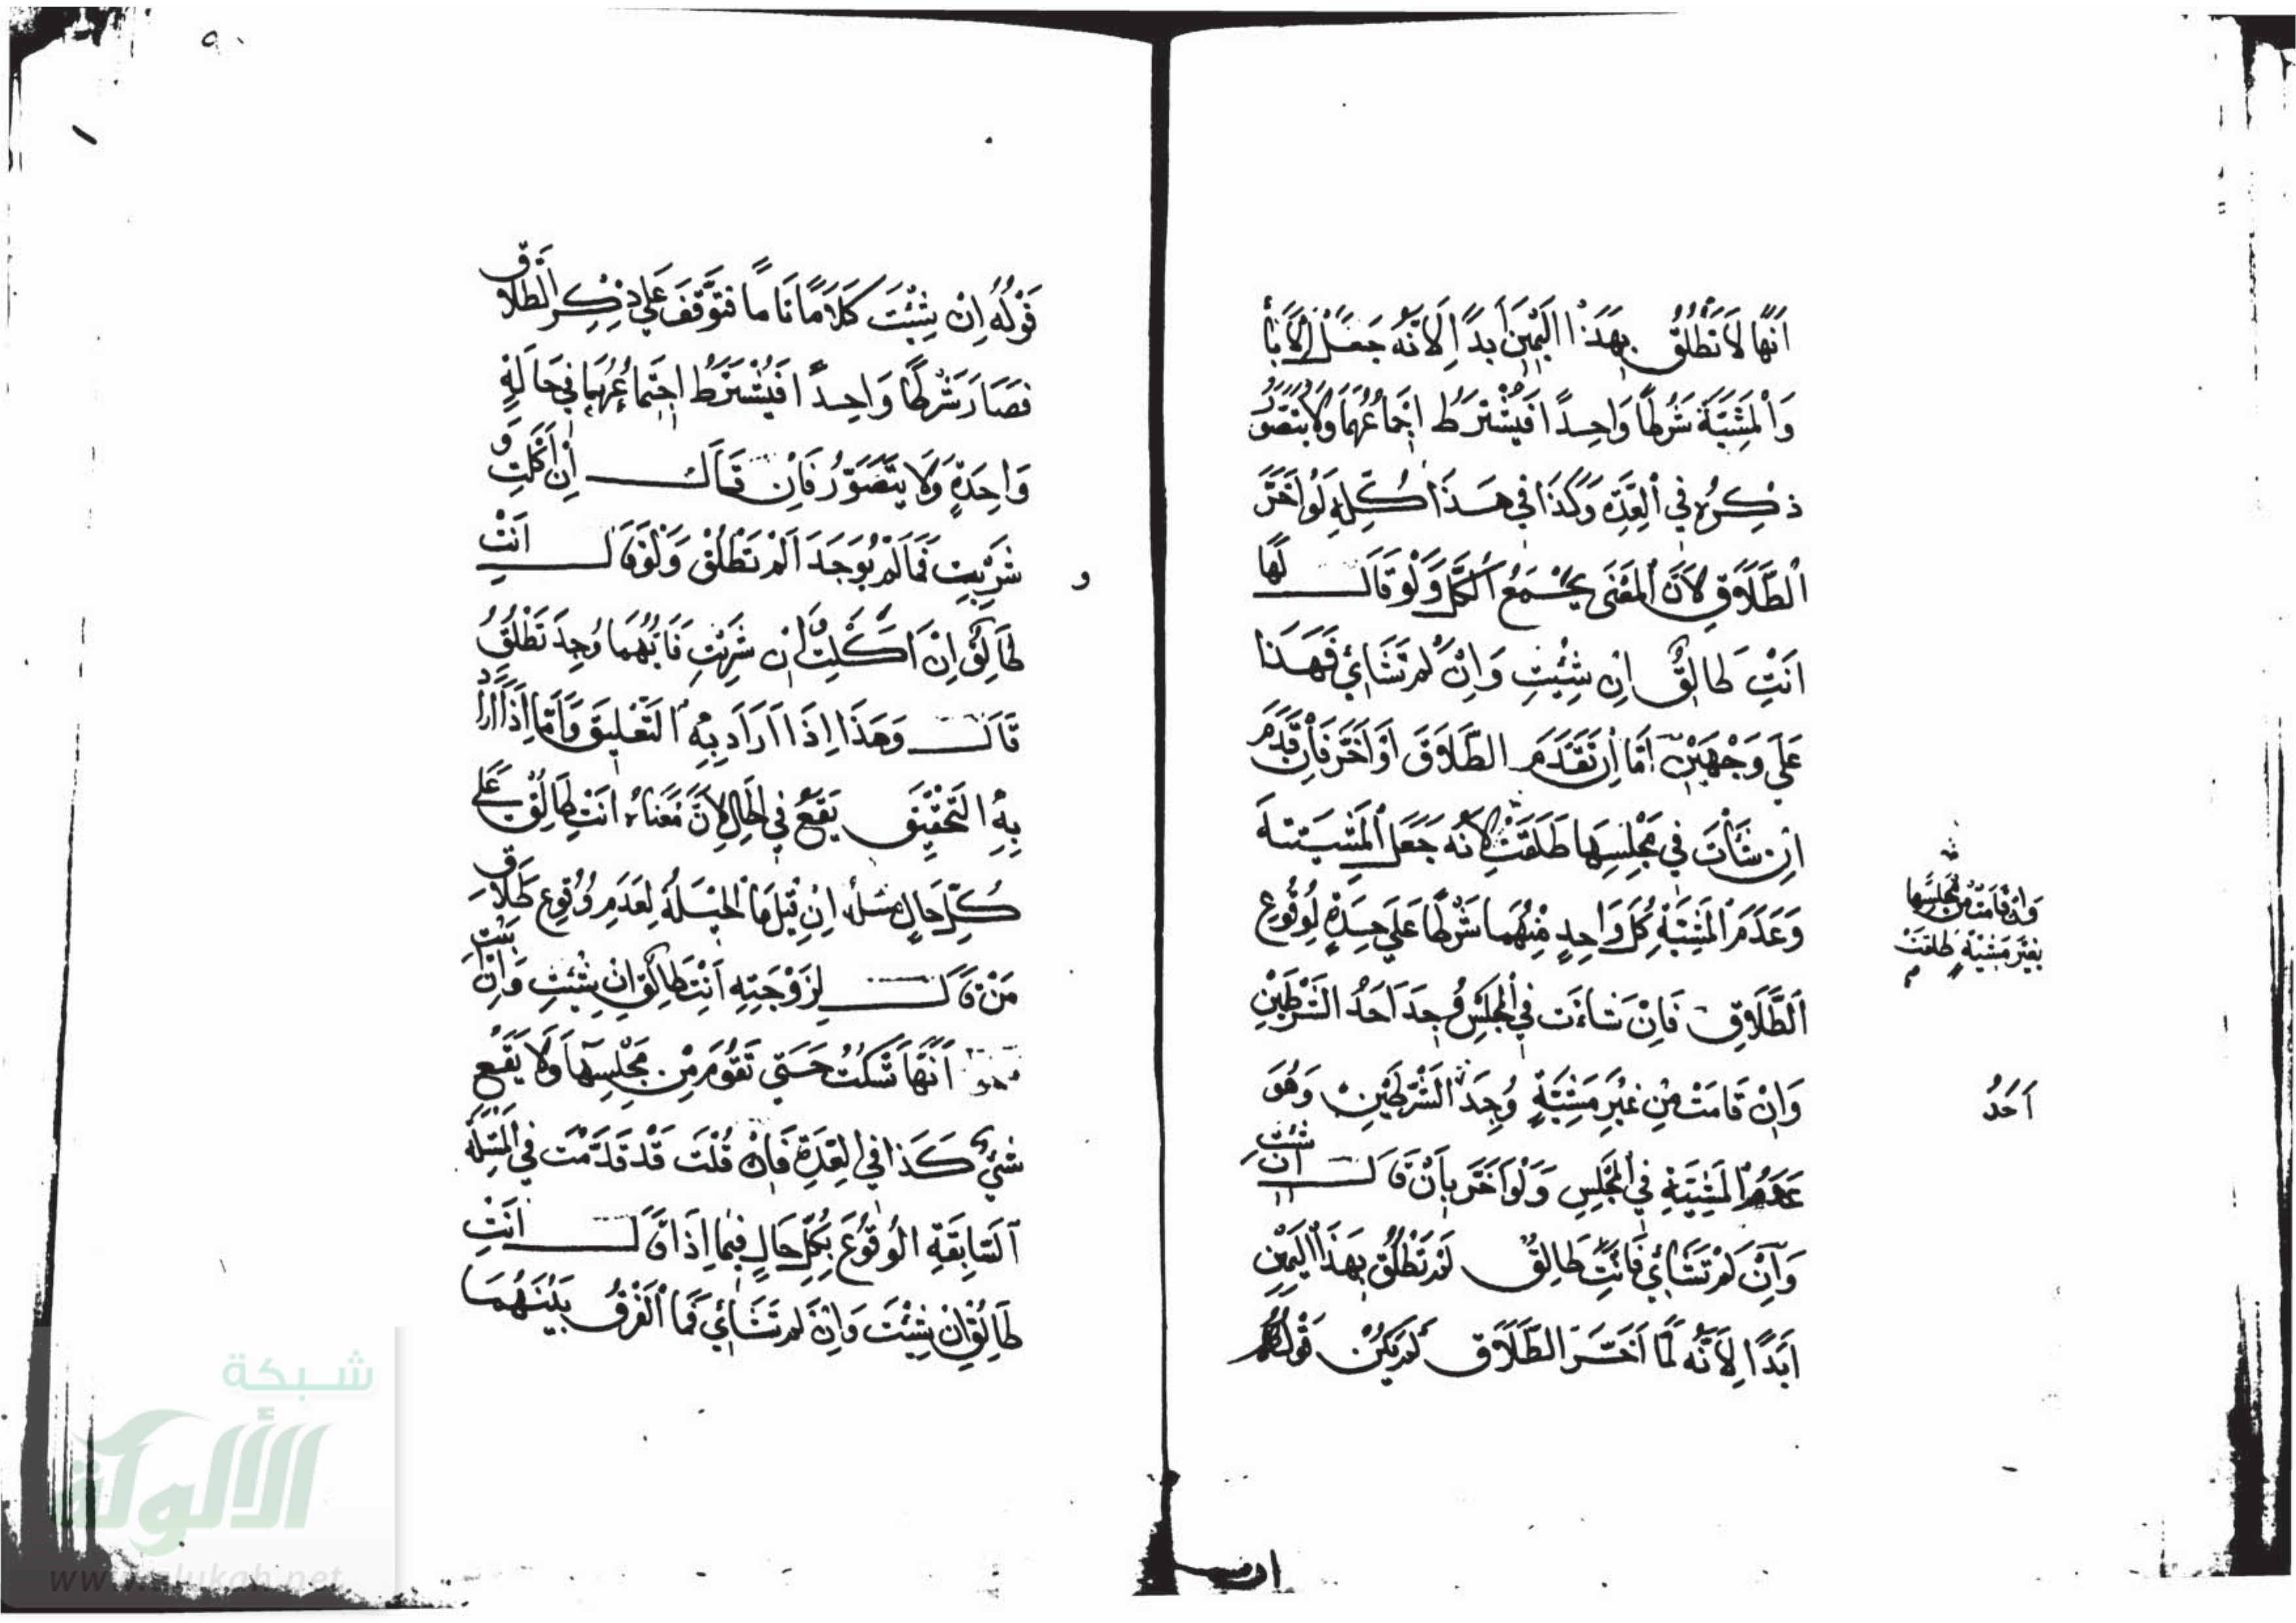 اَنَّهَا لَا تَطْلُقُ بِهَذَا الْيَمِيْنِ اَبَدًا لِاَنَّهُ جَعَلَ الْاِبَاءَ
وَالْمَشِيَّةَ شَرْطًا وَاحِدًا فَيُشْتَرَطُ اجْتِمَاعُهُمَا وَلَا يُتَصَوَّرُ
ذِكْرُهُ فِي الْعِدَّةِ وَكَذَا فِي هَذَا كُلِّهِ لَوْ اَخَّرَ
الطَّلَاقِ لِاَنَّ الْمَعْنَى يَجْمَعُ الْكُلَّ وَلَوْ قَالَ لَهَا
اَنْتِ طَالِقٌ اِنْ شِئْتِ وَاِنْ لَمْ تَشَائِيْ فَهَذَا
عَلَي وَجْهَيْنِ اَمَّا اِنْ تَقَدَّمَ الطَّلَاقَ اَوْ اَخَّرَ فَاِنْ قَدَّمَ
اِنْ شَأَتْ فِي مَجْلِسِهَا طَلَقَتْ لِاَنَّهُ جَعَلَ الْمَشِيَّتَهَ
وَعَدَمَ الْمَشِيَّةِ كُلَّ وَاحِدٍ مِنْهُمَا شَرْطًا عَلَي حِدَةٍ لِوُقُوْعِ
الطَّلَاقِ فَاِنْ شَاءَت فِي الْمَجْلِسِ وُجِدَ اَحَدُ الشَّرْطَيْنِ
وَاِنْ قَامَتْ مِنْ غَيْرِ مَشِيَّةٍ وُجِدَ الشَّرْطَيْنِ وَهُوَ
عَدَمُ الْمَشِيَّةِ فِي الْمَجْلِسِ وَلَوْ اَخَّرَ بِاَنْ قَالَ اِنْ شِئْتِ
وَاِنْ لَمْ تَشَائِيْ فَاَنْتِ طَالِقٌ لَمْ تَطْلُقْ بِهَذَا الْيَمِيْنِ
اَبَدًا لِاَنَّهُ لَمَّا اَخَّرَ الطَّلَاقَ لَمْ يَكُنْ قَوْلُهُ
وَاِنْ قَامَتْ مِنْ مَجْلِسِهَا
بِغَيْرِ مَشِيَّةٍ طَلَقَتْ
اَحَدُ
قَوْلُهُ اِنْ شِئْتِ كَلَامًا تَامًا فَتَوَقَّفَ عَلَي ذِكْرِ الطَّلَاقِ
فَصَارَ شَرْطًا وَاحِدًا فَيُشْتَرَطُ اجْتِمَاعُهُمَا فِي حَالَةٍ
وَاحِدَةٍ وَلَا يُتَصَوَّرُ فَاِنْ قَالَ اِنْ اَكَلْتِ وَ
شَرِبْتِ فَمَا لَمْ يُوجَدَا لَمْ تَطْلُقْ وَلَوْ قَالَ اَنْتِ
طَالِقٌ اِنْ اَكَلْتِ اِنْ شَرِبْتِ فَاَيُّهُمَا وُجِدَ تَطْلُقُ
قَالَ وَهَذَا اِذَا اَرَادَ بِهِ التَّعْلِيقَ وَاَمَّا اِذَا اَرَادَ
بِهِ التَّحْقِيْقَ يَقَعُ فِي الْحَالِ لِاَنَّ مَعْنَاهُ اَنْتِ طَالِقٌ عَلَي
كُلِّ حَالٍ مَسْئَلَةٌ اِنْ قِيْلَ مَا الْحِيْلَةُ لِعَدَمِ وُقُوْعِ طَلَاقِ
مَنْ قَالَ لِزَوْجَتِهِ اَنْتِ طَالِقٌ اِنْ شِئْتِ وَاِنْ اَبَيْتِ
اَنَّهَا تَسْكُتُ حَتَّي تَقُوْمَ مِنْ مَجْلِسِهَا وَلَا يَقَعُ
شَيْءٌ كَذَا فِي الْعِدَّةِ فَاِنْ قُلْتَ قَدْ قَدَّمْتَ فِي الْمَسْئَلَةِ
السَّابِقَةِ الْوُقُوْعَ بِكُلِّ حَالٍ فِيْمَا اِذَا قَالَ اَنْتِ
طَالِقٌ اِنْ شِئْتِ وَاِنْ لَمْ تَشَائِيْ فَمَا الْفَرْقُ بَيْنَهُمَا
شبكة
الألوكة
www.alukah.net